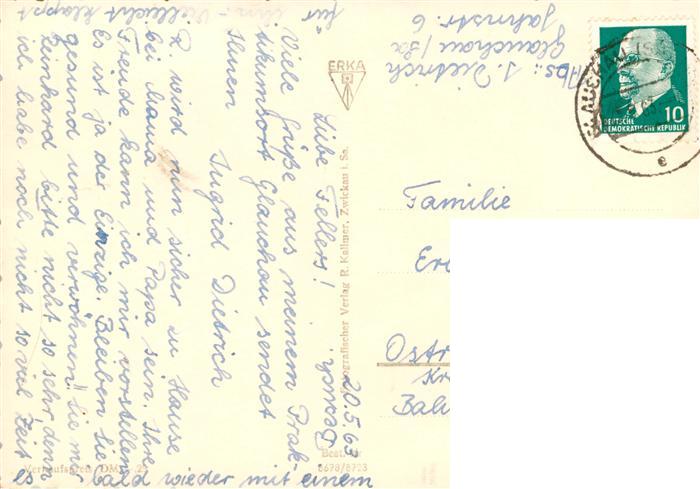 Liebe Fellers!
20.5.63
Viele Grüße aus meinem Prak-
tikumsort Glauchau sendet
Ihnen
Ingrid Dietrich
R. wird nun sicher zu Hause
bei Mama und Papa sein. Ihre
Freude kann ich mir vorstellen.
Es ist ja der Einzige. Bleiben Sie
gesund und verwöhnen Sie mir
Reinhard bitte nicht so sehr, denn
ich habe noch nicht so viel Zeit
für ihn. - Vielleicht klappt
es bald wieder mit einem
Besuch.
Abs.: I. Dietrich
Glauchau/Sa
Jahnstr. 6
Familie
Ostr
Kr
ERKA
Fotografischer Verlag R. Kallmer, Zwickau i. Sa.
Verkaufspreis DM
Best.-Nr.
8678/8723
10
DEUTSCHE
DEMOKRATISCHE REPUBLIK
GLAUCHAU
e